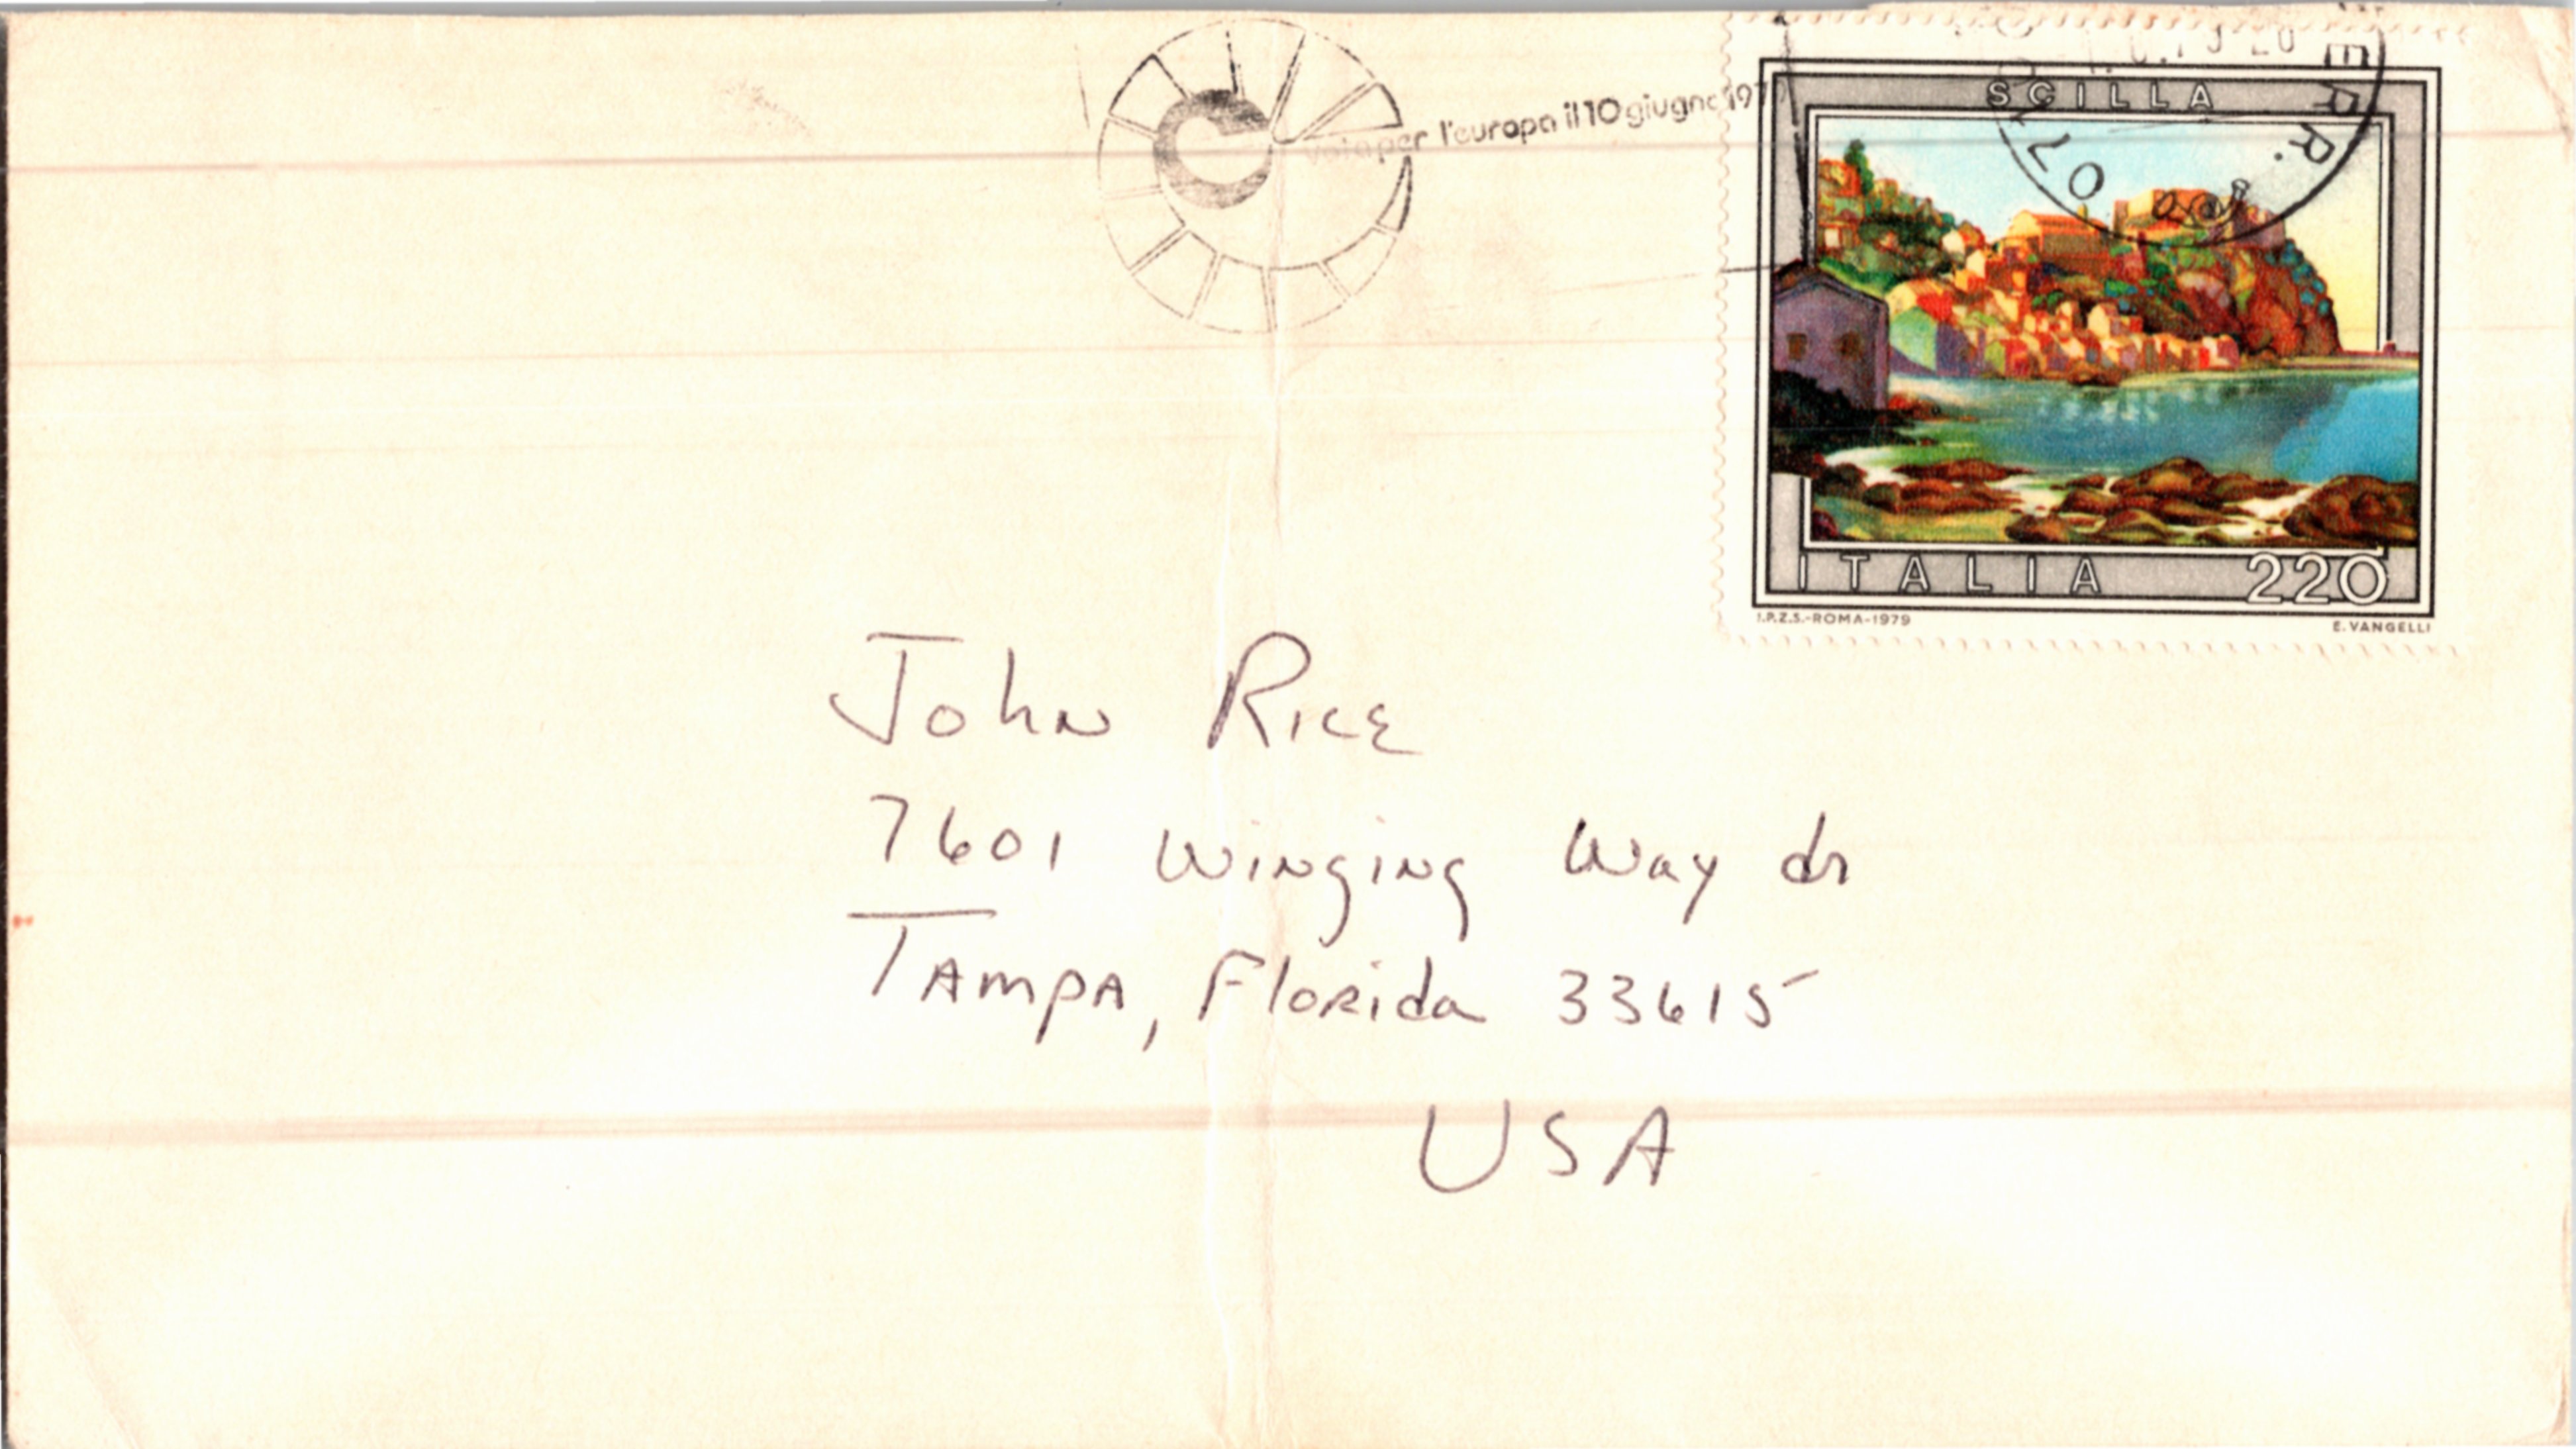 per l'europa il 10 giugno 197
SCILLA
ITALIA 220
I.P.Z.S.-ROMA-1979 E. VANGELLI
John Rice
7601 Winging Way dr
Tampa, Florida 33615
USA